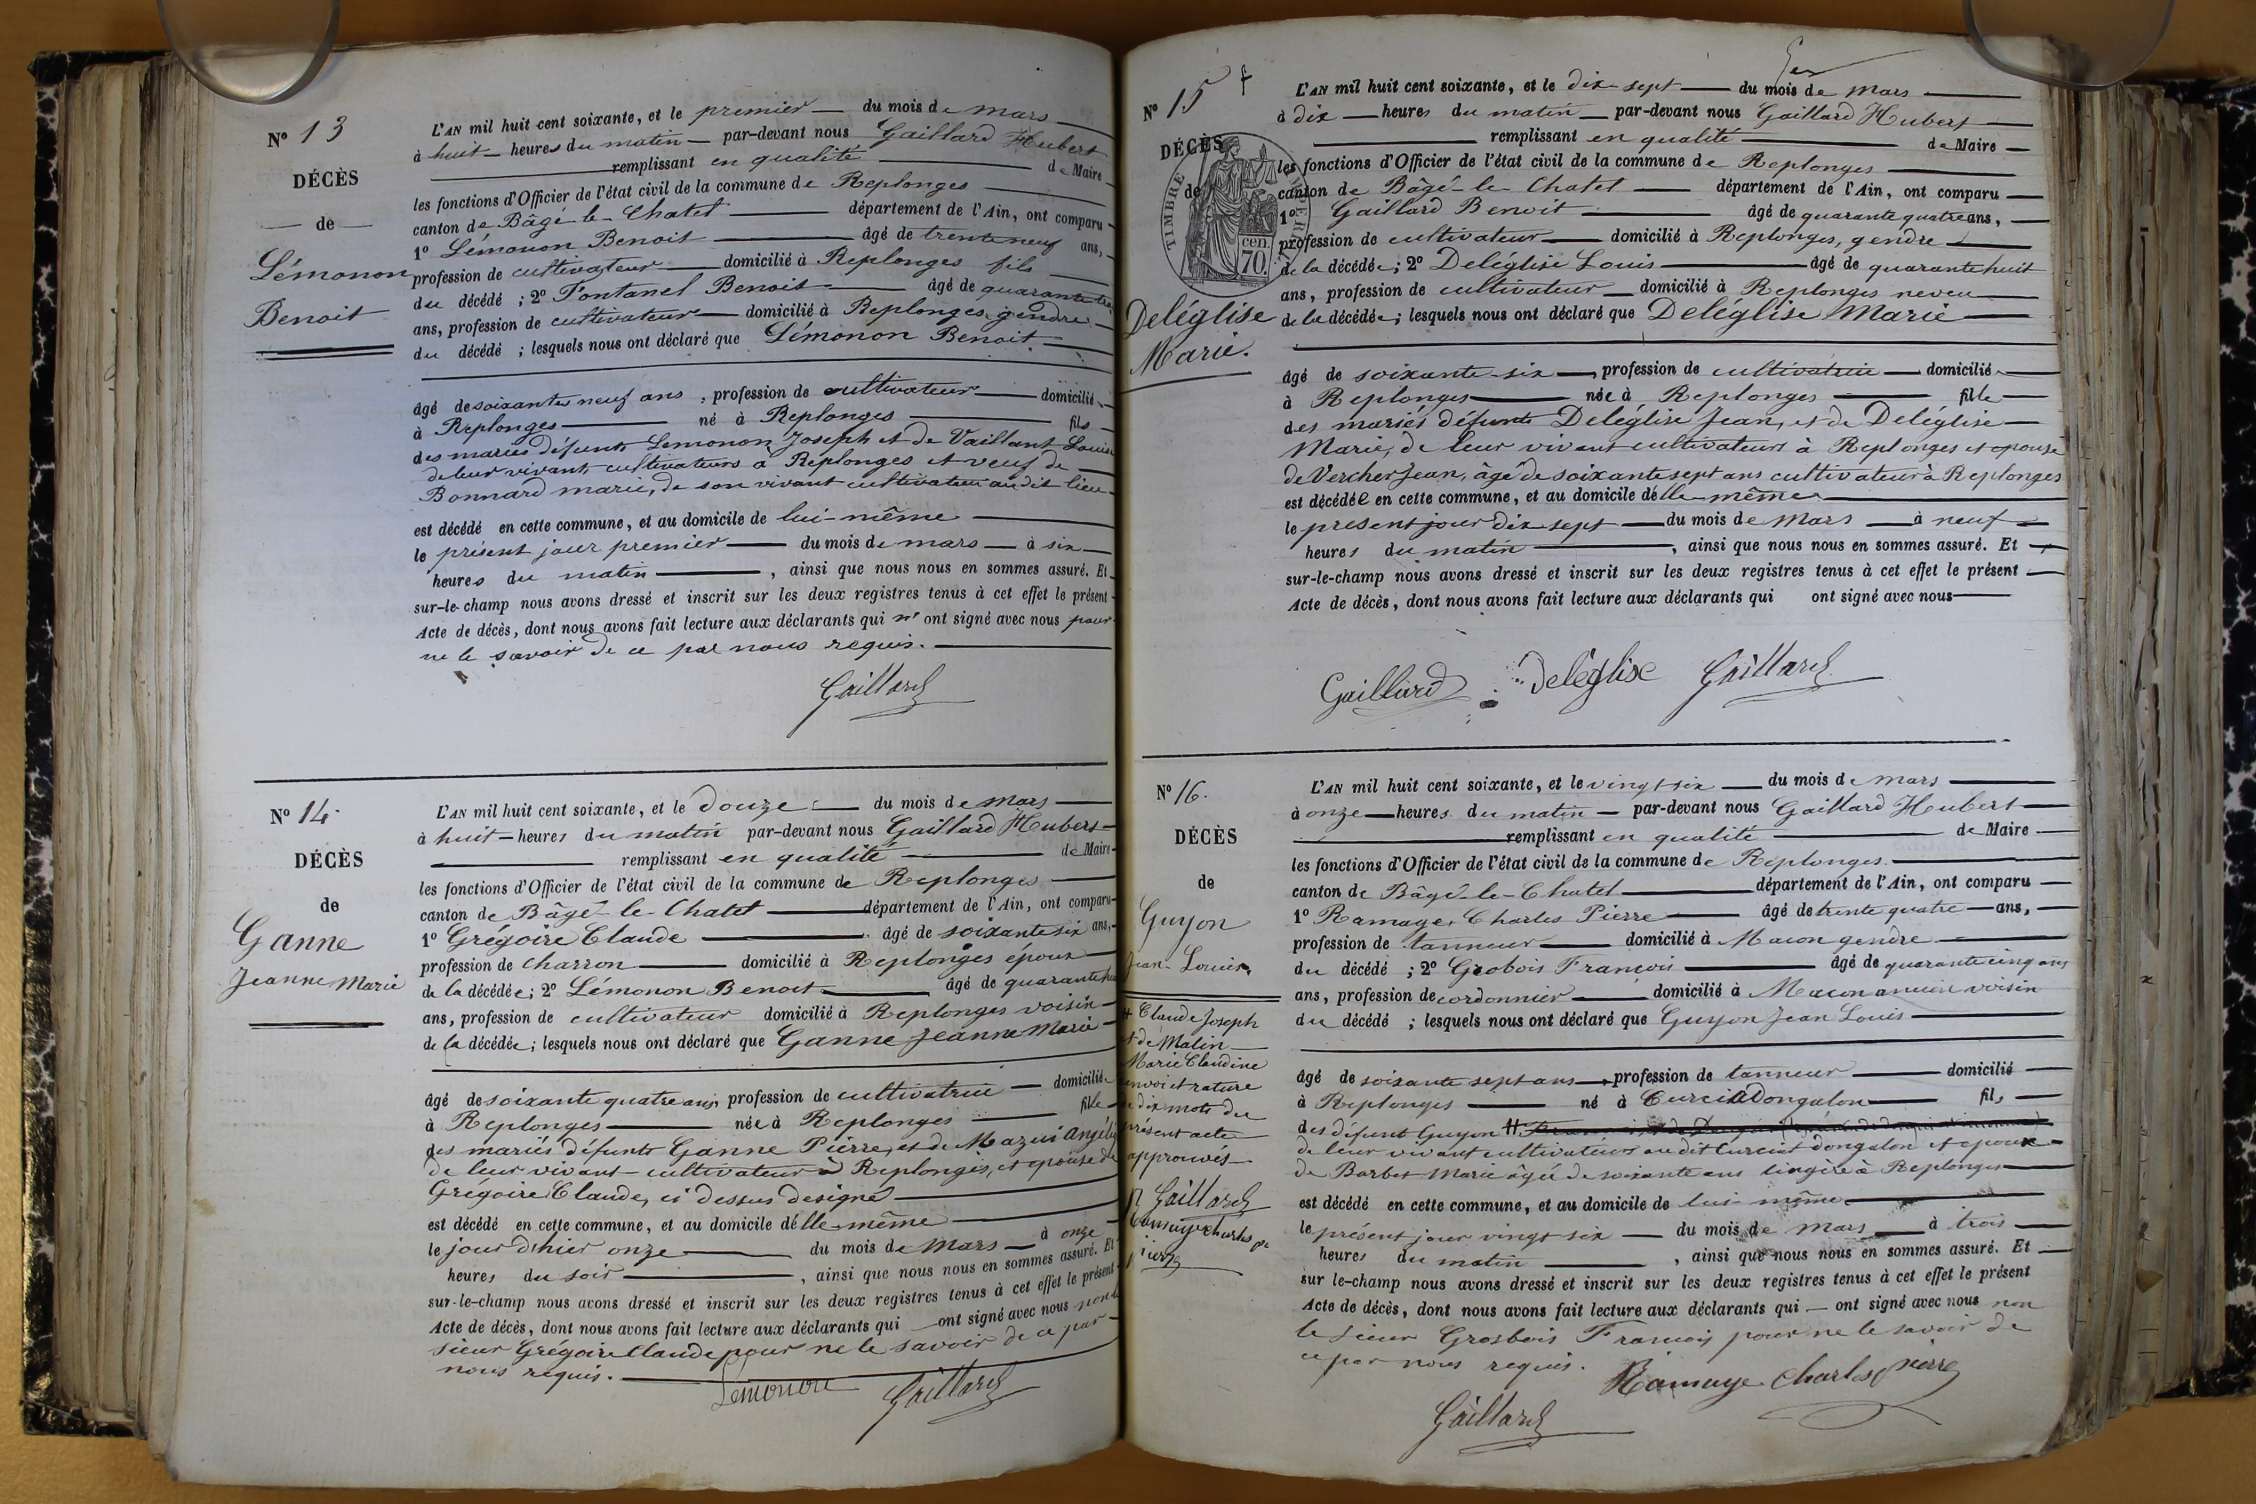 N° 13
DÉCÈS
de
Lémonon
Benoit
L'AN mil huit cent soixante, et le premier du mois de mars
à huit heures du matin par-devant nous Gaillard Hubert
remplissant en qualité de Maire
les fonctions d'Officier de l'état civil de la commune de Replonges
canton de Bâgé-le-Chatel département de l'Ain, ont comparu
1° Lémonon Benoit âgé de trente neuf ans,
profession de cultivateur domicilié à Replonges fils
du décédé ; 2° Fontanel Benoit âgé de quarante
ans, profession de cultivateur domicilié à Replonges gendre
du décédé ; lesquels nous ont déclaré que Lémonon Benoit
âgé de soixante neuf ans, profession de cultivateur domicilié
à Replonges né à Replonges fils
des mariés défunts Lemonon Joseph et de Vaillant Louise
de leur vivant cultivateurs à Replonges et veuf de
Bonnard marie, de son vivant cultivatrice audit lieu
est décédé en cette commune, et au domicile de lui-même
le présent jour premier du mois de mars à six
heures du matin, ainsi que nous nous en sommes assuré. Et
sur-le-champ nous avons dressé et inscrit sur les deux registres tenus à cet effet le présent
Acte de décès, dont nous avons fait lecture aux déclarants qui n'ont signé avec nous pour
ne le savoir de ce par nous requis.
Gaillard
N° 14.
DÉCÈS
de
Ganne
Jeanne Marie
L'AN mil huit cent soixante, et le douze du mois de mars
à huit heures du matin par-devant nous Gaillard Hubert
remplissant en qualité de Maire
les fonctions d'Officier de l'état civil de la commune de Replonges
canton de Bâgé-le-Chatel département de l'Ain, ont comparu
1° Grégoire Claude âgé de soixante six ans,
profession de charron domicilié à Replonges époux
de la décédée ; 2° Lémonon Benoit âgé de quarante
ans, profession de cultivateur domicilié à Replonges voisin
de la décédée ; lesquels nous ont déclaré que Ganne Jeanne Marie
âgé de soixante quatre ans, profession de cultivatrice domicilié
à Replonges née à Replonges fille
des mariés défunts Ganne Pierre, et de Mazui
de leur vivant cultivateur à Replonges, et épouse de
Grégoire Claude, ci dessus designé
est décédé en cette commune, et au domicile d'elle-même
le jour d'hier onze du mois de mars à onze
heures du soir, ainsi que nous nous en sommes assuré. Et
sur-le-champ nous avons dressé et inscrit sur les deux registres tenus à cet effet le présent
Acte de décès, dont nous avons fait lecture aux déclarants qui ont signé avec nous non le
sieur Grégoire Claude pour ne le savoir de ce par
nous requis.
Lemonon Gaillard
N° 15
DÉCÈS
de
TIMBRE
70 cen.
Deléglise
Marie.
L'AN mil huit cent soixante, et le dix sept du mois de mars
à dix heures du matin par-devant nous Gaillard Hubert
remplissant en qualité de Maire
les fonctions d'Officier de l'état civil de la commune de Replonges
canton de Bâgé-le-Chatel département de l'Ain, ont comparu
1° Gaillard Benoit âgé de quarante quatre ans,
profession de cultivateur domicilié à Replonges, gendre
de la décédée ; 2° Deléglise Louis âgé de quarante huit
ans, profession de cultivateur domicilié à Replonges neveu
de la décédée ; lesquels nous ont déclaré que Deléglise Marie
âgé de soixante-six, profession de cultivatrice domicilié
à Replonges née à Replonges fille
des mariés défunts Deléglise Jean, et de Deléglise
Marie, de leur vivant cultivateurs à Replonges et épouse
de Vercher Jean, âgé de soixante sept ans cultivateur à Replonges
est décédée en cette commune, et au domicile d'elle-même
le présent jour dix sept du mois de mars à neuf
heures du matin, ainsi que nous nous en sommes assuré. Et
sur-le-champ nous avons dressé et inscrit sur les deux registres tenus à cet effet le présent
Acte de décès, dont nous avons fait lecture aux déclarants qui ont signé avec nous
Gaillard Deléglise Gaillard
N° 16.
DÉCÈS
de
Guyon
Jean-Louis
# Claude Joseph
et de Matin
Marie Claudine
renvoi et rature
de dix mots du
présent acte
approuvés
Gaillard
Ramaye Charles
pierre
L'AN mil huit cent soixante, et le vingt six du mois de mars
à onze heures du matin par-devant nous Gaillard Hubert
remplissant en qualité de Maire
les fonctions d'Officier de l'état civil de la commune de Replonges.
canton de Bâgé-le-Chatel département de l'Ain, ont comparu
1° Ramaye Charles Pierre âgé de trente quatre ans,
profession de tanneur domicilié à Macon gendre
du décédé ; 2° Grobois François âgé de quarante cinq ans
ans, profession de cordonnier domicilié à Macon ancien voisin
du décédé ; lesquels nous ont déclaré que Guyon Jean Louis
âgé de soixante sept ans, profession de tanneur domicilié
à Replonges né à Curciat Dongalon fils
des défunt Guyon #
de leur vivant cultivateurs audit Curciat dongalon et époux
de Barbet Marie âgée de soixante ans lingère à Replonges
est décédé en cette commune, et au domicile de lui même
le présent jour vingt six du mois de mars à trois
heures du matin, ainsi que nous nous en sommes assuré. Et
sur le-champ nous avons dressé et inscrit sur les deux registres tenus à cet effet le présent
Acte de décès, dont nous avons fait lecture aux déclarants qui ont signé avec nous non
le sieur Grosbois François pour ne le savoir de
ce par nous requis. Ramaye Charles pierre
Gaillard